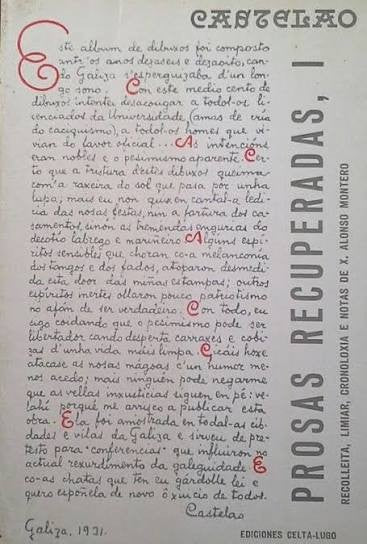 CASTELAO
Este album de dibuxos foi composto
antr'os anos dezaseis e dezaoito, can-
do Galiza s'esperguizaba d'un lon-
go sono. Con este medio cento de
dibuxos intentei desacougar a todol-os li-
cenciados da Universidade (amas de cria
do caciquismo), a todol-os homes que vi-
vian do favor oficial... As intencións
eran nobles e o pesimismo aparente. Cer-
to que a tristura d'estes dibuxos queima
com'a raxeira do sol que pasa por unha
lupa; mais eu non quixen cantal-a ledi-
cia das nosas festas, nin a fartura dos ca-
samentos, sinon as tremendas angurias do
decotio labrego e mariñeiro. Alguns espi-
ritos sensibles que choran co-a melanconia
dos tangos e dos fados, atoparon desmedi-
da esta door das miñas estampas; outros
espiritos inertes ollaron pouco patriotismo
no afán de ser verdadeiro. Con todo, eu
sigo coidando que o pesimismo pode ser
libertador cando desperta carraxes e cobi-
zas d'unha vida mais limpa. Quizais hoxe
atacase as nosas mágoas c'un humor me-
nos acedo; mais ninguen pode negarme
que as vellas inxusticias siguen en pé: ve-
lahi porqué me arrisco a publicar esta
obra. Ela foi amostrada en todal-as ciu-
dades e vilas da Galiza e sirveu de pre-
testo para "conferencias" que influiron no
actual rexurdimento da galeguidade. E
co-as chatas que ten eu gárdolle lei e
quero espoñela de novo ô xuicio de todos.
Castelao
Galiza, 1931.
PROSAS RECUPERADAS, I
RECOLLEITA, LIMIAR, CRONOLOXIA E NOTAS DE X. ALONSO MONTERO
EDICIONES CELTA-LUGO